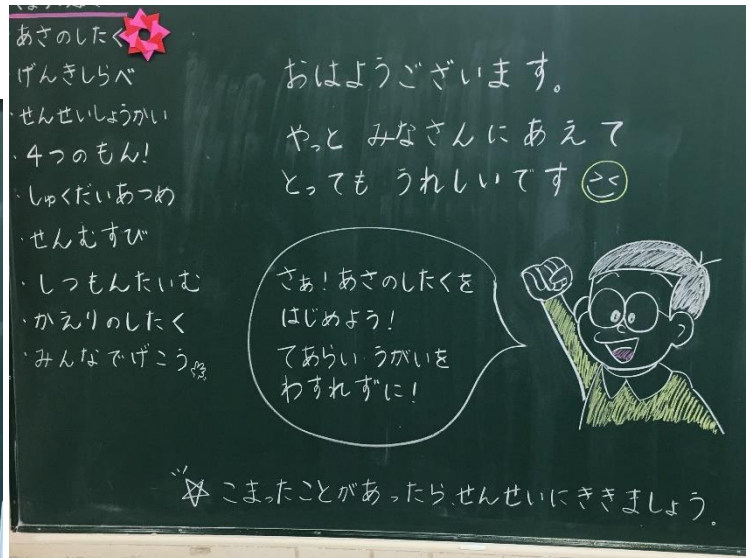 あさのしたく
・げんきしらべ
・せんせいしょうかい
・4つのもん!
・しゅくだいあつめ
・せんむすび
・しつもんたいむ
・かえりのしたく
・みんなでげこう
おはようございます。
やっと みなさんにあえて
とっても うれしいです
さぁ!あさのしたくを
はじめよう!
てあらい うがいを
わすれずに!
☆こまったことがあったら、せんせいにききましょう。